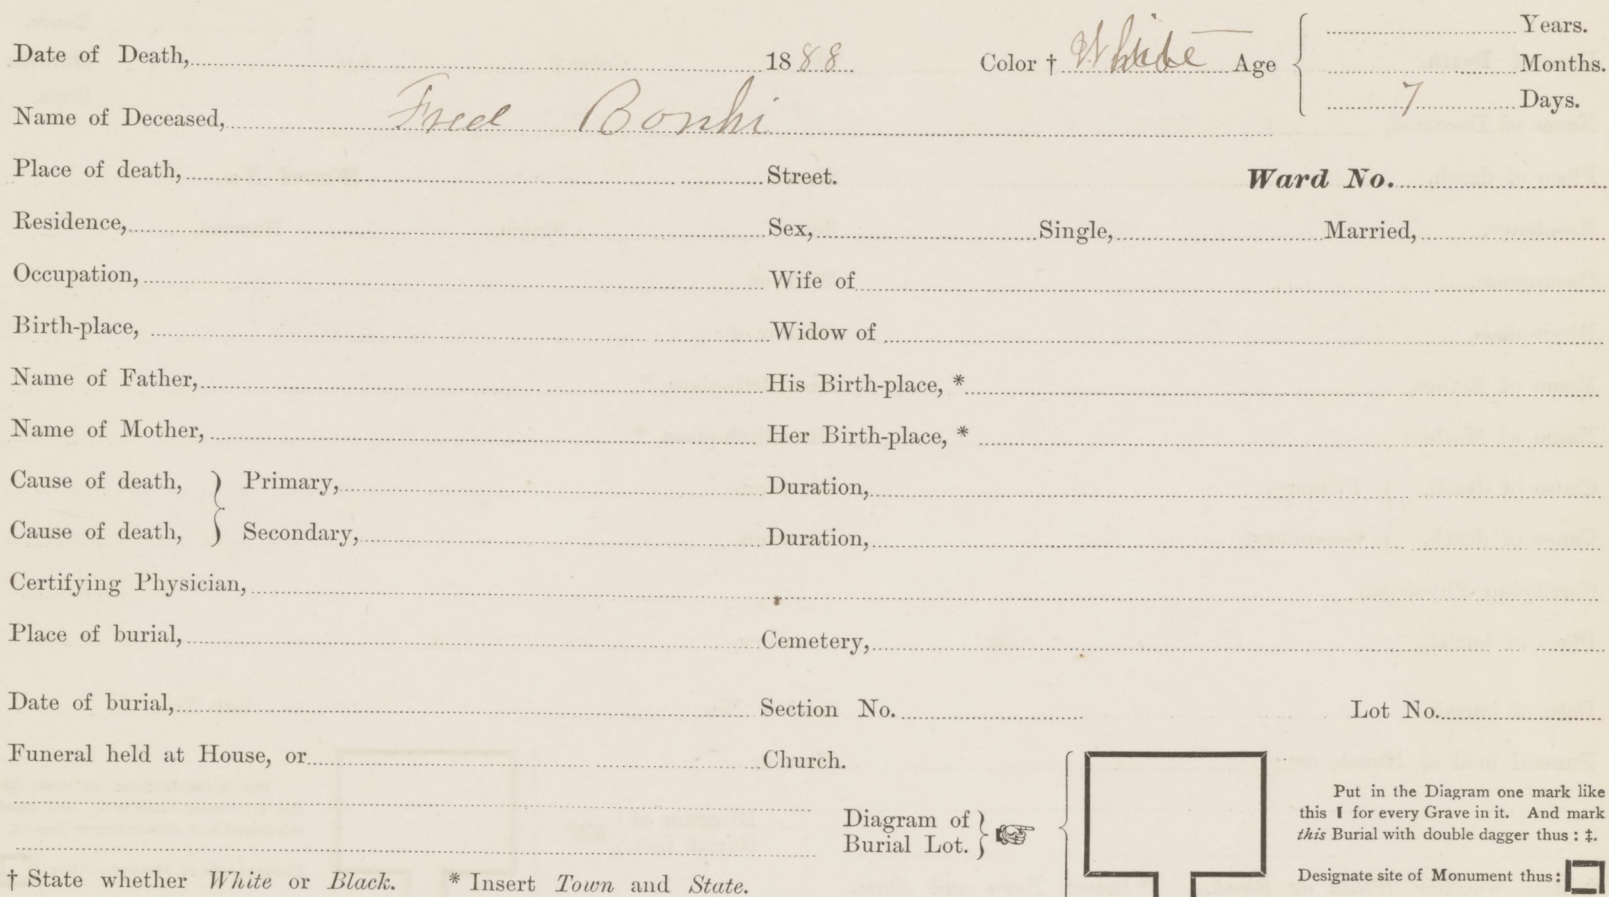 Years.
Date of Death, 1888 Color † White Age Months.
7 Days.
Name of Deceased, Fred Bonhi
Place of death, Street. Ward No.
Residence, Sex, Single, Married,
Occupation, Wife of
Birth-place, Widow of
Name of Father, His Birth-place, *
Name of Mother, Her Birth-place, *
Cause of death, } Primary, Duration,
Cause of death, } Secondary, Duration,
Certifying Physician,
Place of burial, Cemetery,
Date of burial, Section No. Lot No.
Funeral held at House, or Church.
Diagram of
Burial Lot. }
Put in the Diagram one mark like
this I for every Grave in it. And mark
this Burial with double dagger thus : ‡.
Designate site of Monument thus :
† State whether White or Black. * Insert Town and State.